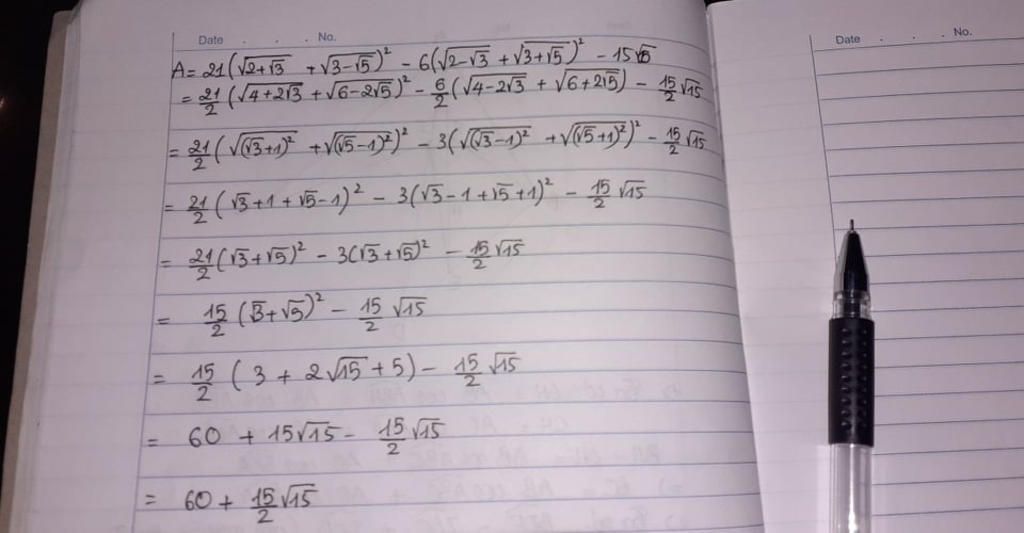 Date . . . No.
A = 21(√(2+√3) + √(3-√5))² - 6(√(2-√3) + √(3+√5))² - 15√15
= 21/2 (√(4+2√3) + √(6-2√5))² - 6/2 (√(4-2√3) + √(6+2√5)) - 15/2 √15
= 21/2 (√((√3+1)²) + √((√5-1)²))² - 3(√((√3-1)²) + √((√5+1)²))² - 15/2 √15
= 21/2 (√3+1+√5-1)² - 3(√3-1+√5+1)² - 15/2 √15
= 21/2 (√3+√5)² - 3(√3+√5)² - 15/2 √15
= 15/2 (√3+√5)² - 15/2 √15
= 15/2 (3 + 2√15 + 5) - 15/2 √15
= 60 + 15√15 - 15/2 √15
= 60 + 15/2 √15
Date . . . No.